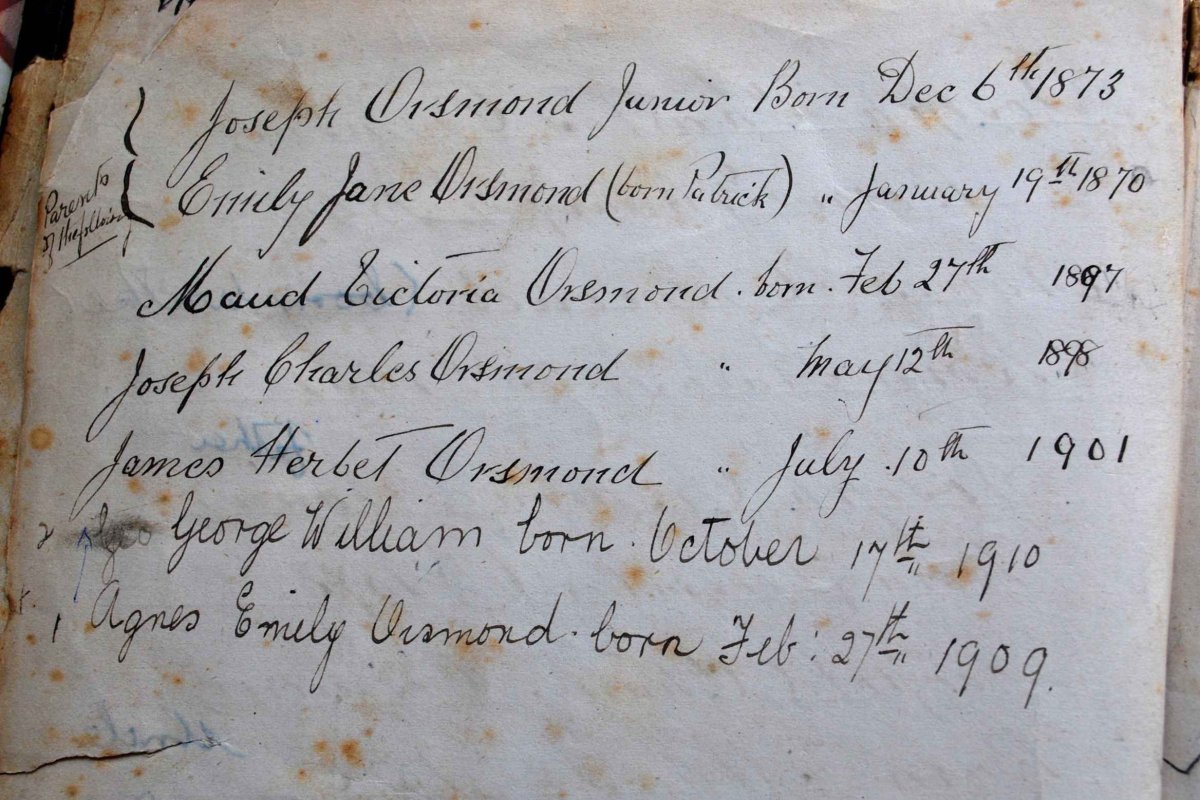 Joseph Orsmond Junior Born Dec 6th 1873
Emily Jane Orsmond (born Patrick) " January 19th 1870
Parents
of the following
Maud Victoria Orsmond. born. Feb 27th 1897
Joseph Charles Orsmond " May 12th 1898
James Herbet Orsmond " July 10th 1901
2 George William born October 17th 1910
1 Agnes Emily Orsmond. born Feb: 27th 1909.